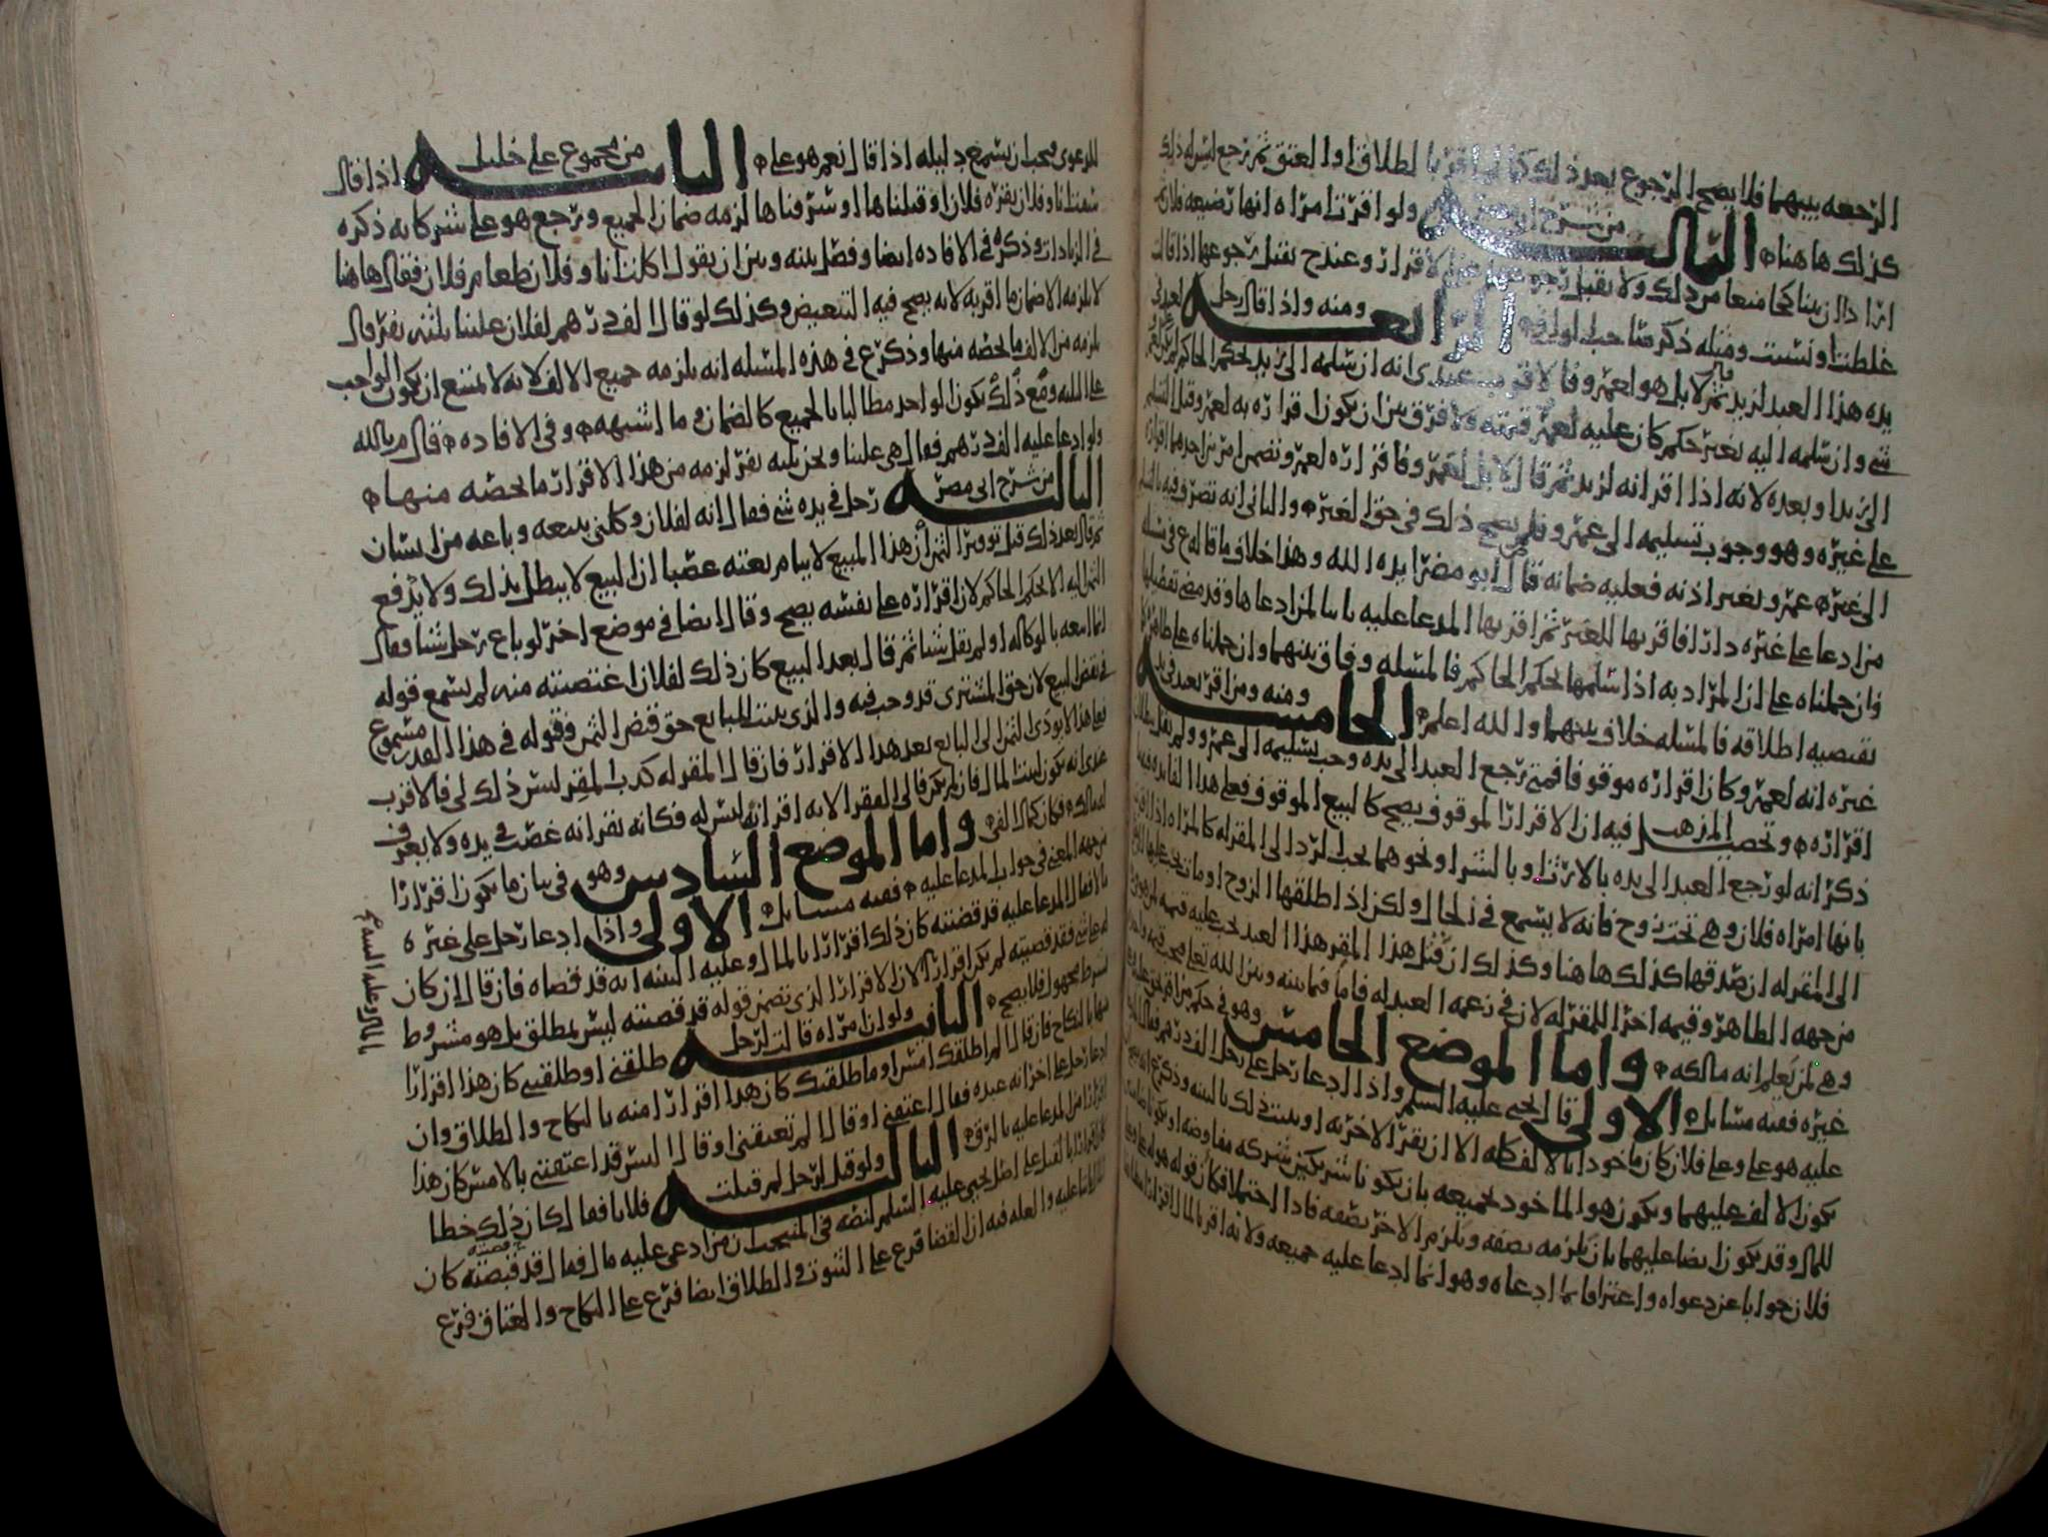 الرجعه بينهما فلا يصح الرجوع بعد ذلك كما لو اقر بالطلاق او العتق ثم رجع ليس له ذلك
كذلك هاهنا الثالثه من شرح ولو اقرت امراه انها رضيعه فلان ثم
ارادا ان يتناكحا منعا من ذلك ولا يقبل رجوعها عن الاقرار وعند ح يقبل رجوعها اذا قالت
غلطت او نسيت ومثله ذكر صاحب الوافي الرابعه ومنه واذا قال رجل لعبد في
يده هذا العبد لزيد ثم قال لا بل هو لعمرو فالاقرب عندي انه ان سلمه الى زيد بحكم الحاكم
شي وان سلمه اليه بغير حكم كان عليه لعمرو قيمته ولا فرق بين ان يكون اقراره به لعمرو قبل التسليم
الى زيد او بعده لانه اذا اقر انه لزيد ثم قال لا بل لعمرو فاقراره لعمرو تضمن امرين احدهما اقراره
على غيره وهو وجوب تسليمه الى عمرو فلم يصح ذلك في حق الغير والثاني انه تصرف فيه بالتسليم
الى غير عمرو بغير اذنه فعليه ضمانه قال ابو مضر ايده الله وهذا خلاف ما قاله ع في مسله
من ادعا على غيره دارا فاقر بها للغير ثم اقر بها للمدعا عليه بانها لمن ادعاها وقد مضى تفصيلها
فان حملناه على ان المراد به اذا سلمها بحكم الحاكم فالمسله وفاق بينهما وان حملناه على ظاهر ما
يقتضيه اطلاقه فالمسله خلاف بينهما والله اعلم الخامسه ومنه ومن اقر بعبد في يد
غيره انه لعمرو كان اقراره موقوفا فمتى رجع العبد الى يده وجب تسليمه الى عمرو ولم يقل ببطلان
اقراره وتحصيل المذهب فيه ان الاقرار الموقوف يصح كالبيع الموقوف فعلى هذا الفايده فيه
ذكر انه لو رجع العبد الى يده بالارث او بالشرا ونحوهما يجب الرد الى المقر له كالمراه اذا اقر
بانها امراه فلان وهي تحت زوج فانه لا يسمع في الحال ولكن اذا طلقها الزوج او مات يجب عليها
الى المقر له ان صدقها كذلك هاهنا وكذلك ان قتل هذا المقر هذا العبد تجب عليه قيمته
من جهه الظاهر وقيمه اخرا للمقر له لان في زعمه العبد له فاما فيما بينه وبين الله تعالى فتجب قيمه واحده
وهي لمن يعلم انه مالكه واما الموضع الخامس وهو في حكم من اقر
غيره ففيه مسايل الاولى قال يحيى عليه السلم واذا ادعا رجل على رجل الف درهم فقال
عليه هو علي وعلى فلان كان ماخوذا بالالف كله الا ان يقر الاخر به او يثبت ذلك بالبينه وذكر
يكون الالف عليهما ويكون هو الماخوذ بجميعه بان يكونا شريكين شركه مفاوضه او يكونا ضامنين
للمال وقد يكون ايضا عليهما بان يلزمه نصفه ويلزم الاخر نصفه فاذا احتملا فكان قوله هو علي وعلى
فلان جوابا عن دعواه واعترافا بما ادعاه وهو انما ادعا عليه جميعه ولانه اقر بالمال
للدعوى فيجب ان يسمع دليله اذا قال نعم هو علي الثانيه من مجموع علي خليل اذا قال
غصبنا انا وفلان بقره فلان او قتلناها او سرقناها لزمه ضمان الجميع ويرجع هو على شركايه ذكره
في الزيادات وذكره في الافاده ايضا وفصل بينه وبين ان يقول اكلت انا وفلان طعام فلان فقال هاهنا
لا يلزمه الا ضمان ما اقر به لانه يصح فيه التبعيض وكذلك لو قال الف درهم لفلان علينا ثلثه نفر قال
يلزمه من الالف ما يخصه منها وذكر ع في هذه المسله انه يلزمه جميع الالف لانه لا يمتنع ان يكون الواجب
على الثلثه ومع ذلك يكون الواحد مطالبا بالجميع كالضمان وما اشبهه وفي الافاده قال م بالله
ولو ادعا عليه الف درهم فقال هي علينا ونحن ثلثه نفر لزمه من هذا الاقرار ما يخصه منها
الثالثه من شرح ابي مضر رجل في يده شي فقال انه لفلان وكلني ببيعه وباعه من انسان
ثم قال بعد ذلك قبل توفير الثمن ان هذا المبيع لابي او بعته غصبا ان البيع لا يبطل بذلك ولا يدفع
الثمن اليه الا بحكم الحاكم لان اقراره على نفسه يصح وقال ايضا في موضع اخر لو باع رجل شيا فقال
انما ابيعه بالوكاله او لم يقل شيا ثم قال بعد البيع كان ذلك لفلان اغتصبته منه لم يسمع قوله
في نقض البيع لان حق المشتري قد وجب فيه والذي يثبت للبايع حق قبض الثمن وقوله في هذا القدر مسموع
فعلى هذا لا يودى الثمن الى البايع بعد هذا الاقرار فان قال المقر له كذب المقر ليس ذلك لي فالاقرب
عندي انه يكون لبيت المال فان لم يكن فالى الفقرا لانه اقر انه ليس له فكانه يقر انه غصب في يده ولا يعرف
لمالكه فكان كمال الفي واما الموضع السادس وهو في بيان ما يكون اقرارا
من جهه المعنى في جواب المدعا عليه ففيه مسايل الاولى واذا ادعا رجل على غيره
مالا فقال المدعا عليه قد قضيته كان ذلك اقرارا بالمال وعليه البينه انه قد قضاه فان قال ان كان
له علي شي فقد قضيته لم يكن اقرارا لان الاقرار الذي تضمن قوله قد قضيته ليس بمطلق بل هو مشروط
بشرط مجهول فلا يصح الثانيه ولو ان امراه قالت لرجل طلقني او طلقتني كان هذا اقرارا
منها بالنكاح فان قال لم اطلقك امس او ما طلقتك كان هذا اقرارا منه بالنكاح والطلاق وان
ادعا رجل على اخر انه عبده فقال اعتقني او قال لم تعتقني او قال اليس قد اعتقتني بالامس كان هذا
اقرارا من المدعا عليه بالرق الثالثه ولو قيل لرجل لم قتلت فلانا فقال كان ذلك خطا
كان اقرارا بالقتل على اصل يحيى عليه السلم لنصه في المنتخب ان من ادعى عليه مال فقال قد قبضته كان
اقرارا ثابتا عليه والعله فيه ان القضا فرع على الثبوت والطلاق ايضا فرع على النكاح والعتاق فرع
بالمال وعليه البينه